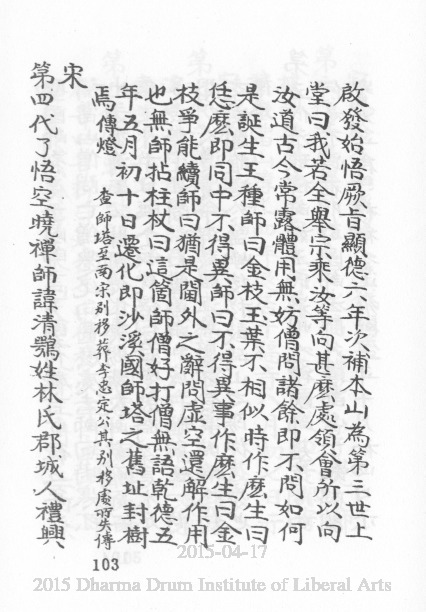 啟發始悟厥旨顯德六年次補本山為第三世上
堂曰我若全舉宗乘汝等向甚麽處領會所以向
汝道古今常露體用無妨僧問諸餘即不問如何
是誕生王種師曰金枝玉葉不相似時作麽生曰
恁麽即同中不得異師曰不得異事作麽生曰金
枝爭能續師曰猶是閫外之辭問虛空還解作用
也無師拈柱杖曰這箇師僧好打僧無語乾德五
年五月初十日遷化即沙溪國師塔之舊址封樹
焉傳燈 查師塔至兩宋別移葬李忠定公其別移處所失傳
宋
第四代了悟空曉禪師諱清鶚姓林氏郡城人禮興
103
2015-04-17
2015 Dharma Drum Institute of Liberal Arts